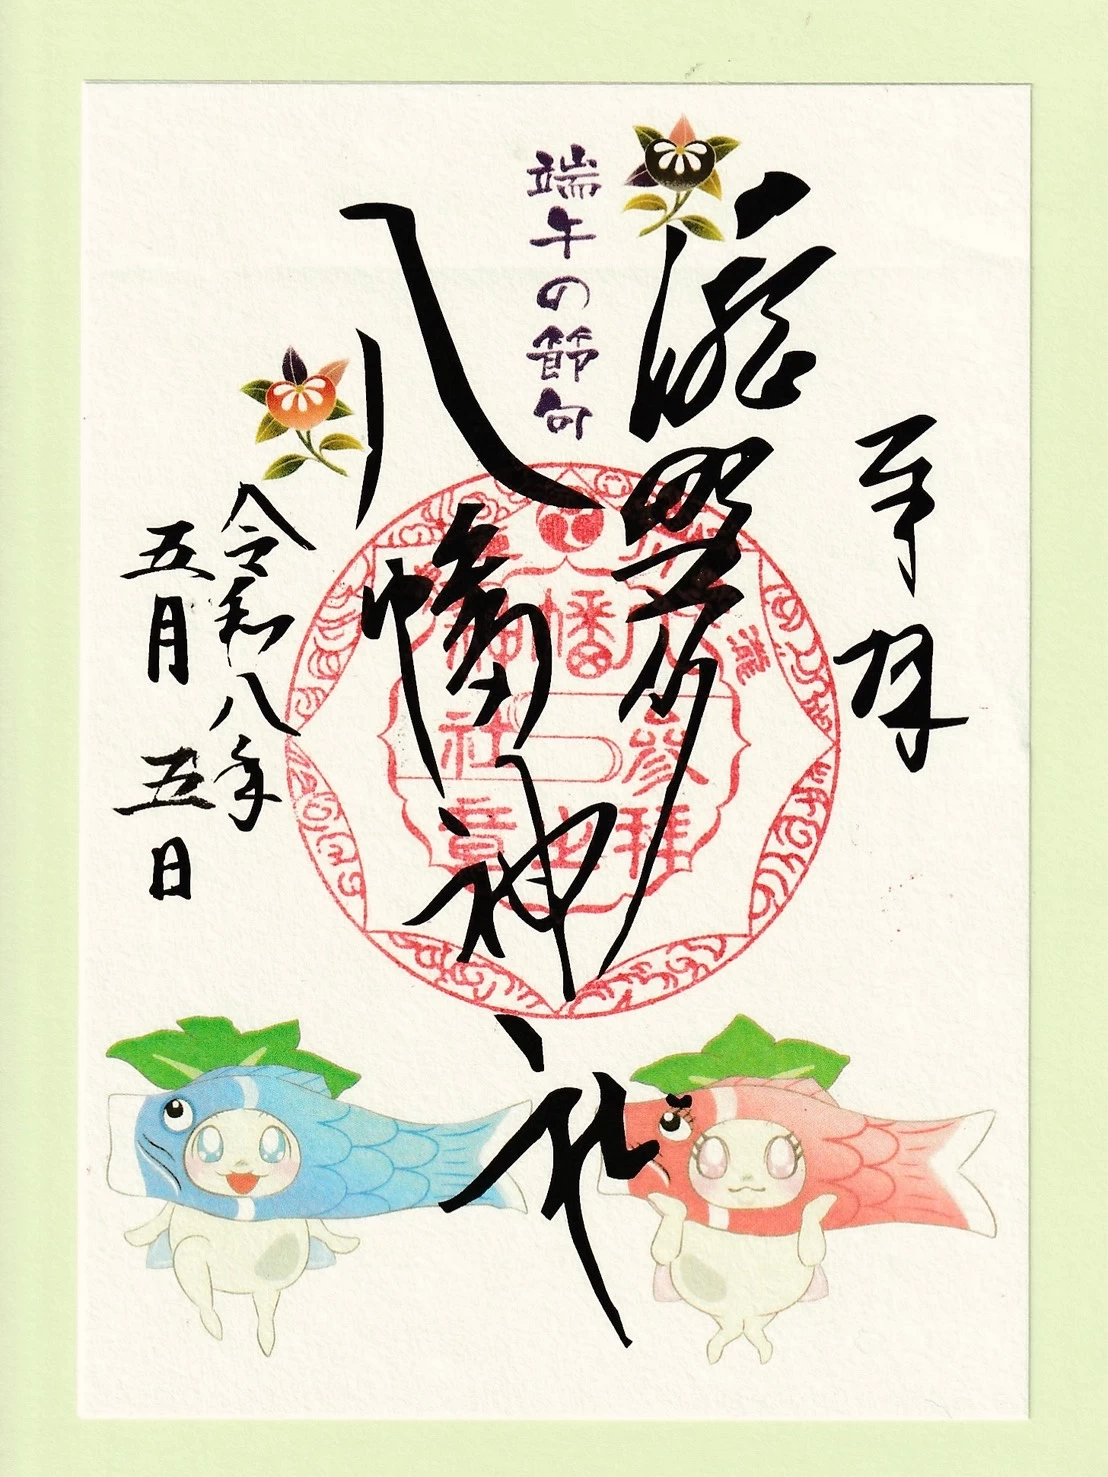 奉拝
瀧野川
八幡神社
端午の節句
令和八年
五月五日
八幡神社
參拜之章